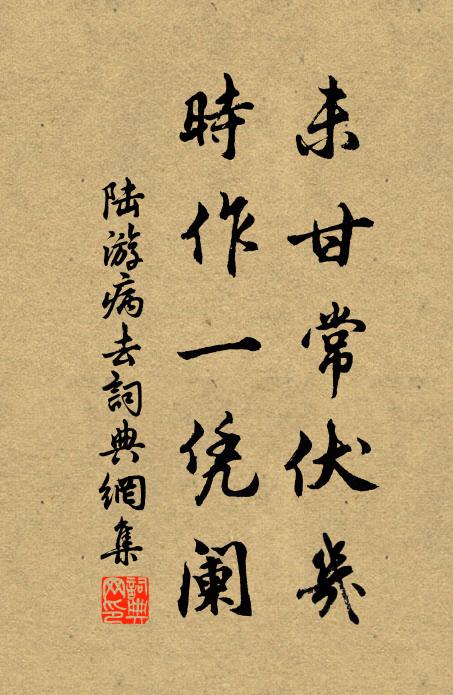 未甘常伏幾
時作一凭阑
陆游病去詞典網集
詞典网印